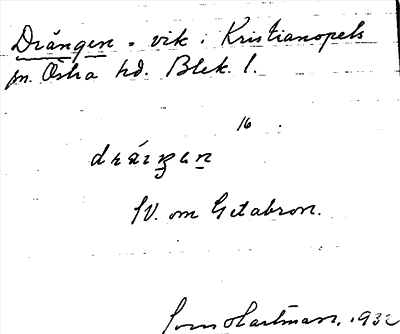 Drängen. vik i Kristianopels
sn. Östra hd. Blek. l.
16
dräŋen
SV. om Getabron.
Hartman. 1932